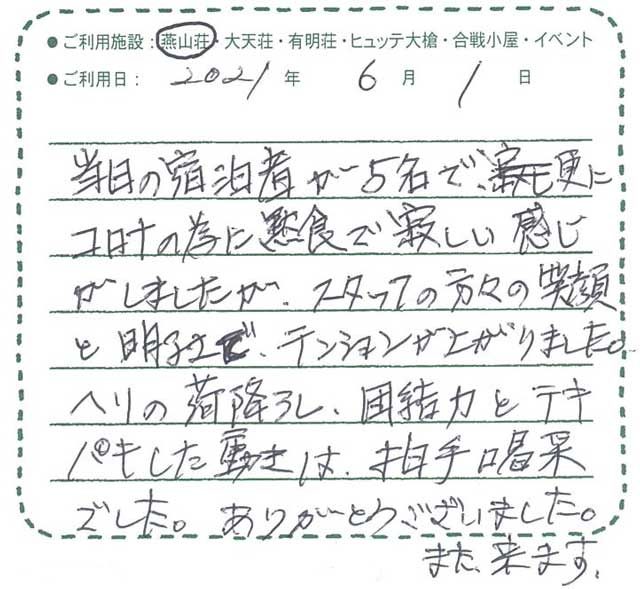 ●ご利用施設：燕山荘・大天荘・有明荘・ヒュッテ大槍・合戦小屋・イベント
●ご利用日： 2021 年 6 月 1 日
当日の宿泊者が5名で、更に
コロナの為に黙食で寂しい感じ
がしましたが、スタッフの方々の笑顔
と明るさで、テンションが上がりました。
ヘリの荷降ろし、団結力とテキ
パキした動きは、拍手喝采
でした。ありがとうございました。
また、来ます。